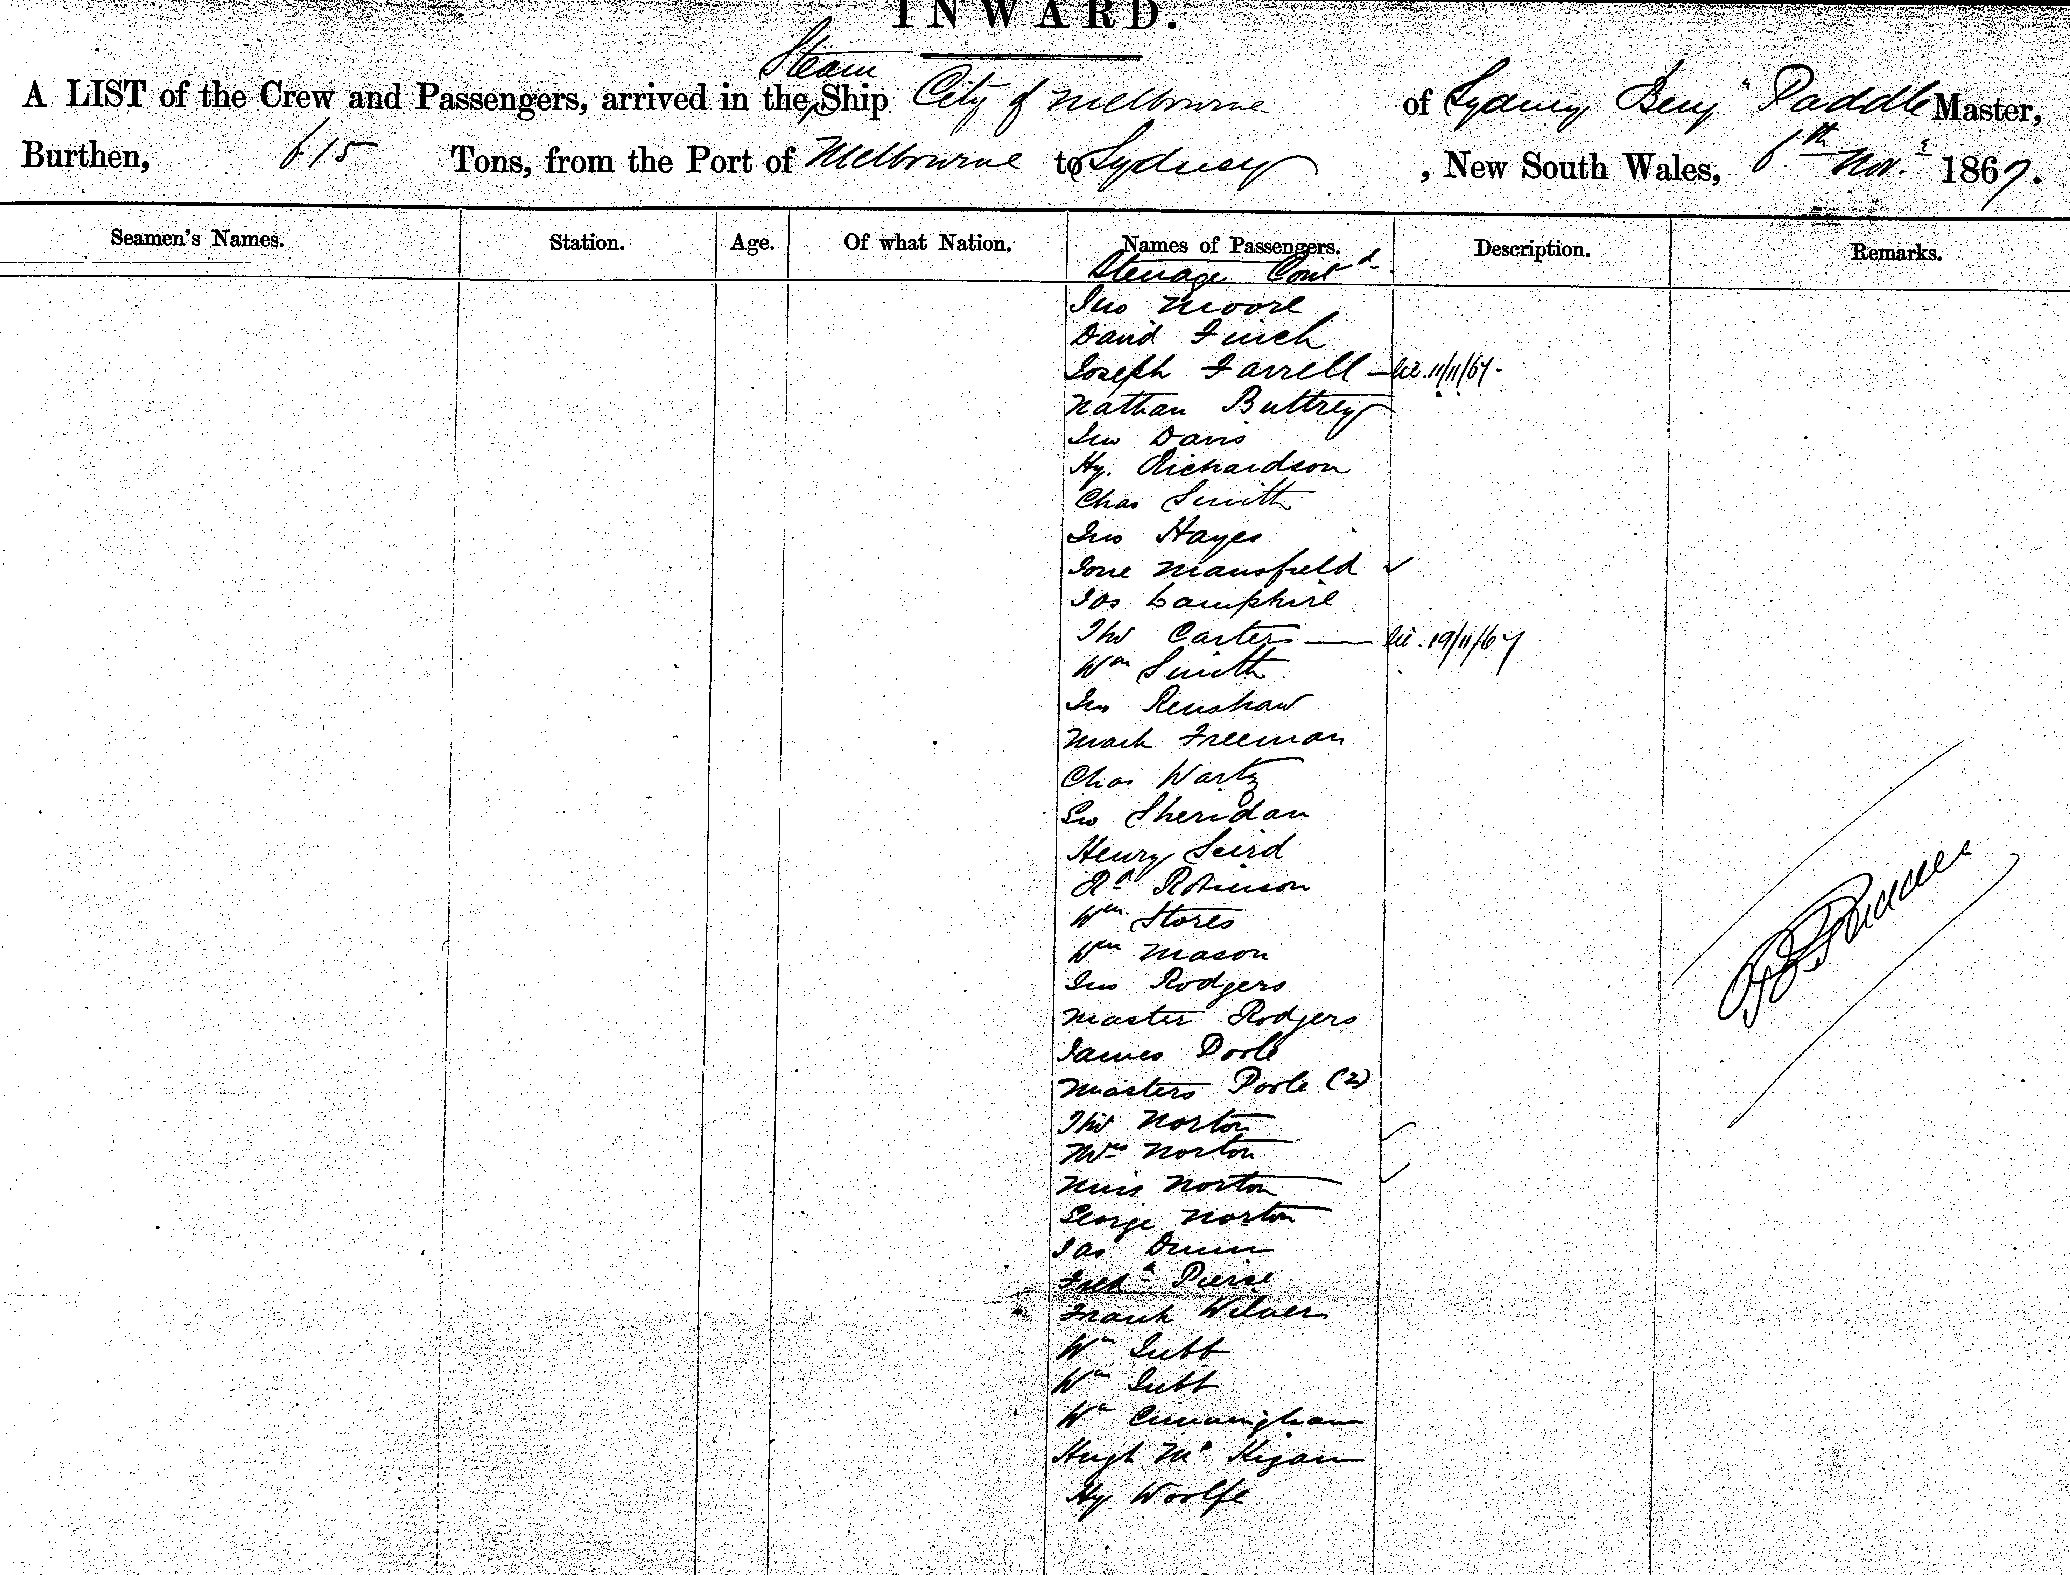 INWARD.
Steam
A LIST of the Crew and Passengers, arrived in the Ship City of Melbourne of Sydney Benj Paddle Master,
Burthen, 615 Tons, from the Port of Melbourne to Sydney, New South Wales, 6th Nov. 1867.
Seamen's Names. Station. Age. Of what Nation. Names of Passengers. Description. Remarks.
Steerage Contd
Jno Moore
David Finch
Joseph Farrell 11/11/67
Nathan Buttrey
Jno Davis
Hy. Richardson
Chas Smith
Jno Hayes
Mansfield
Jos Lamphire
Thos Carter 19/11/67
Wm Smith
Jno Renshaw
Mark Freeman
Chas Wartz
Geo Sheridan
Henry
Rd Robinson
Wm Stores
Wm Mason
Jno Rodgers
Master Rodgers
James Poole
Masters Poole (2)
Thos Norton
Mrs Norton
Miss Norton
George Norton
Jas Dunn
Fredk Pierse
Frank
Wm Jubb
Wm Jubb
Wm Cunningham
Hugh Mc Kigan
Hy Woolfe